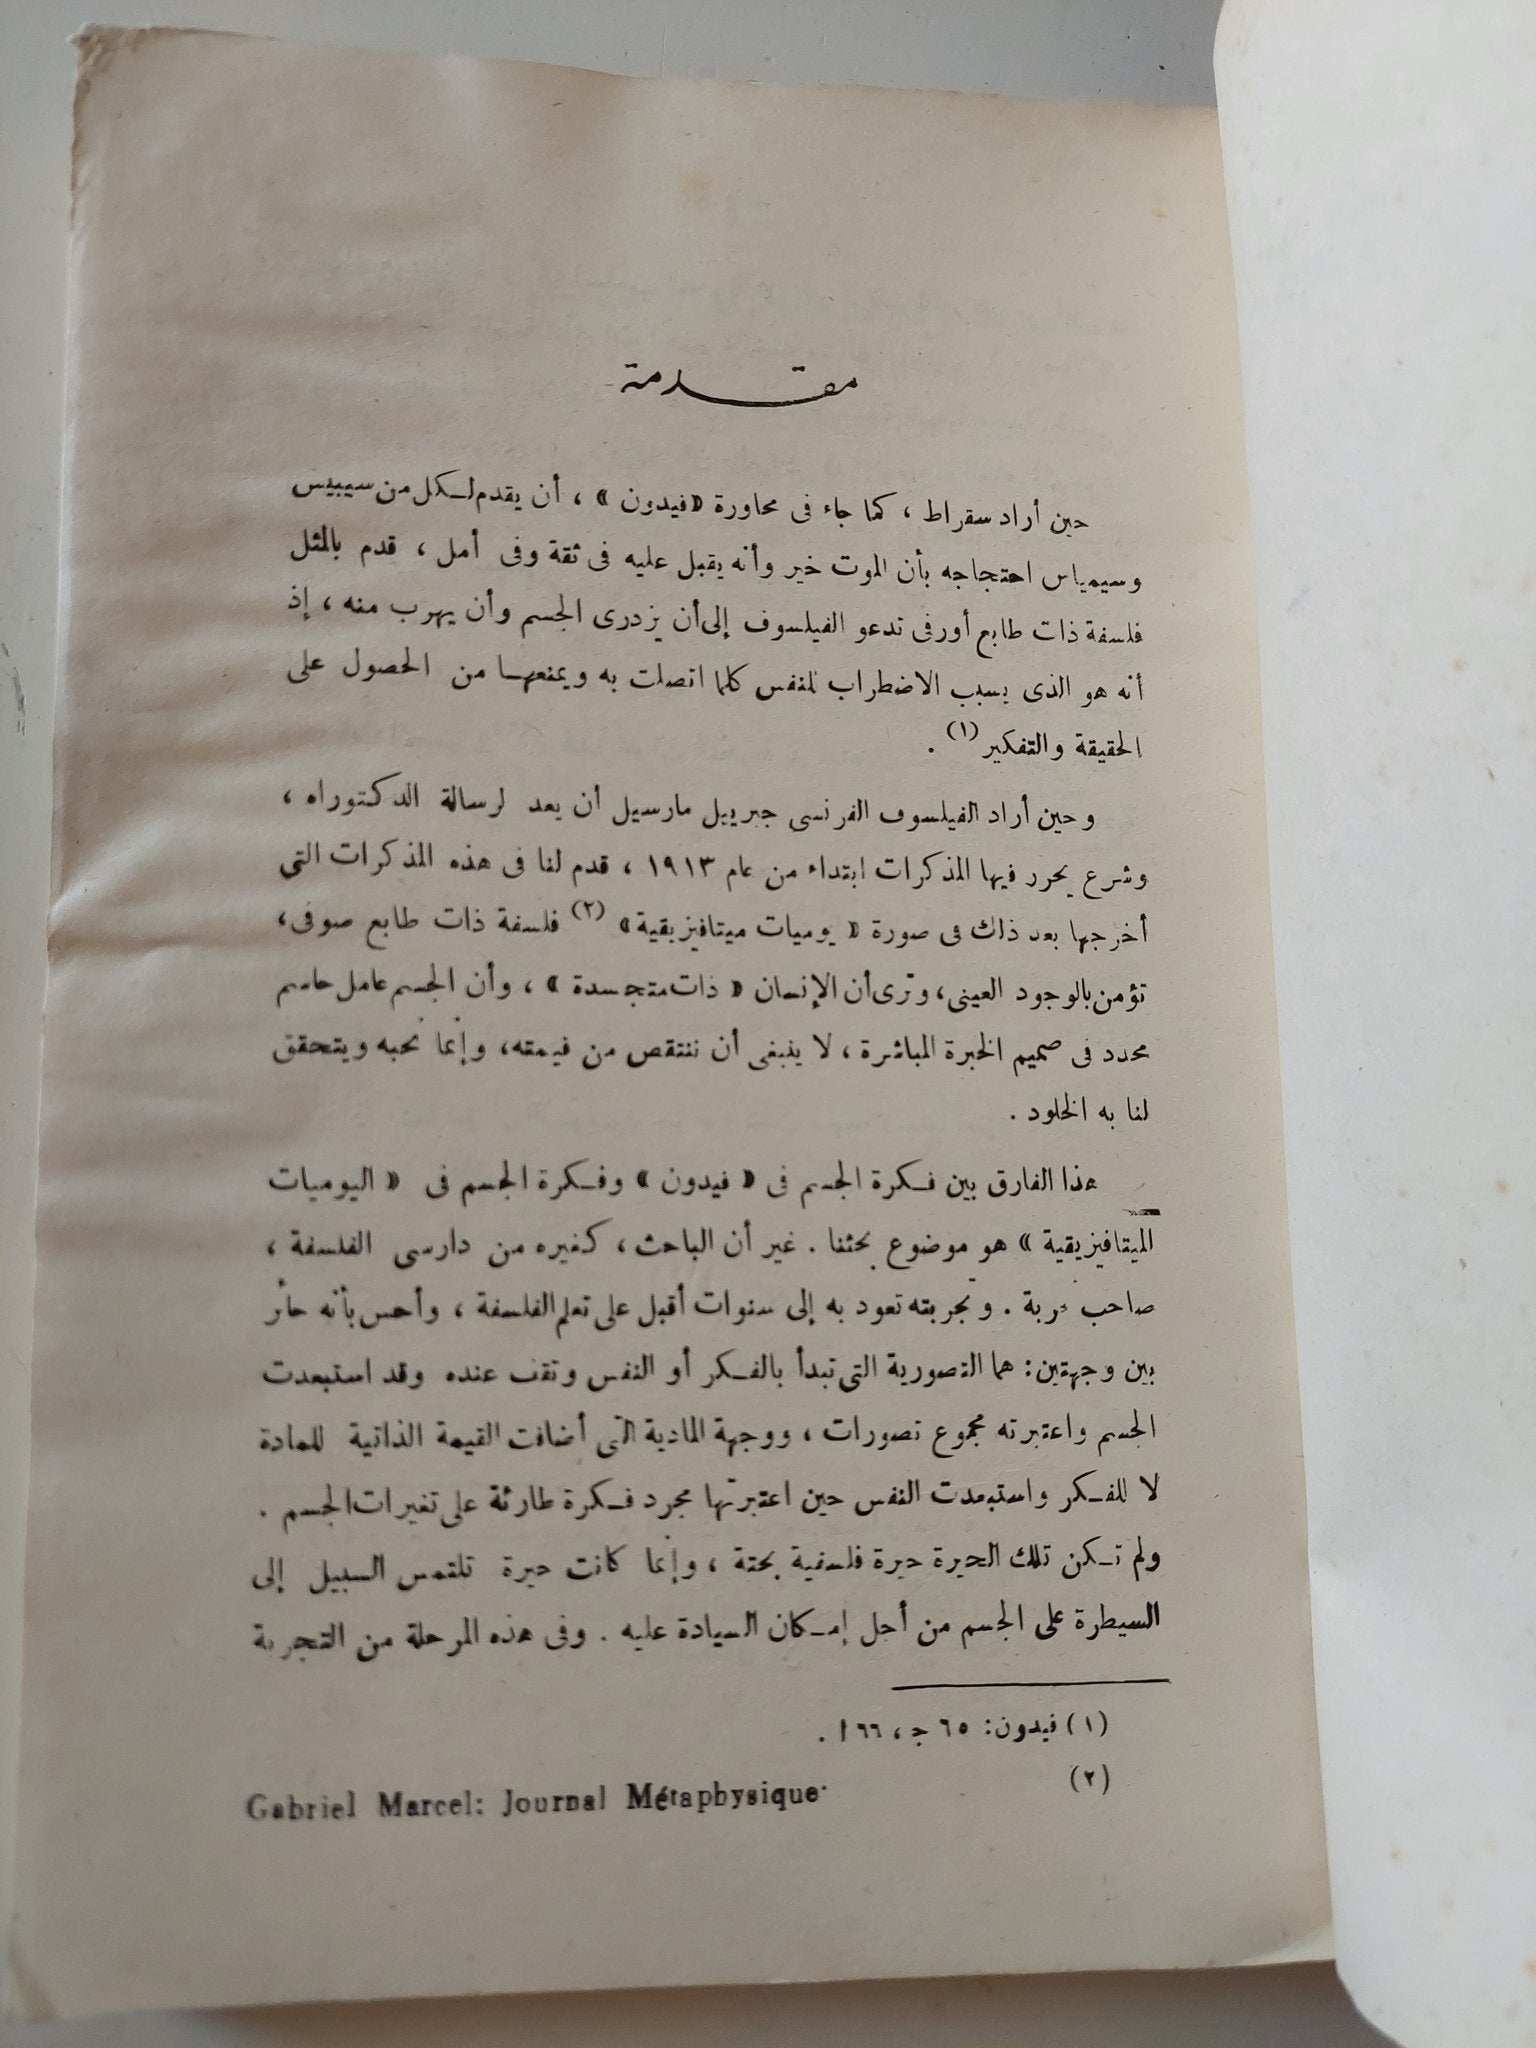 مقدمة
حين أراد سقراط ، كما جاء فى محاورة «فيدون» ، أن يقدم لكل من سيبيس
وسيمياس احتجاجه بأن الموت خير وأنه يقبل عليه فى ثقة وفى أمل ، قدم بالمثل
فلسفة ذات طابع أورفى تدعو الفيلسوف إلى أن يزدرى الجسم وأن يهرب منه ، إذ
أنه هو الذى يسبب الاضطراب للنفس كلما اتصلت به ويمنعها من الحصول على
الحقيقة والتفكير (١) .
وحين أراد الفيلسوف الفرنسى جبرييل مارسيل أن يعد لرسالة الدكتوراه ،
وشرع يحرر فيها المذكرات ابتداء من عام ١٩١٣ ، قدم لنا فى هذه المذكرات التى
أخرجها بعد ذلك فى صورة « يوميات ميتافيزيقية» (٢) فلسفة ذات طابع صوفى،
تؤمن بالوجود العينى، وترى أن الإنسان « ذات متجسدة » ، وأن الجسم عامل حاسم
محدد فى صميم الخبرة المباشرة ، لا ينبغى أن ننتقص من قيمته، وإنما نحبه ويتحقق
لنا به الخلود .
هذا الفارق بين فكرة الجسم فى « فيدون » وفكرة الجسم فى « اليوميات
الميتافيزيقية » هو موضوع بحثنا . غير أن الباحث ، كغيره من دارسى الفلسفة ،
صاحب تجربة . وتجربته تعود به إلى سنوات أقبل على تعلم الفلسفة ، وأحس بأنه حائر
بين وجهتين : هما التصورية التى تبدأ بالفكر أو النفس وتقف عنده وقد استبعدت
الجسم واعتبرته مجموع تصورات ، ووجهة المادية التى أضافت القيمة الذاتية للمادة
لا للفكر واستبعدت النفس حين اعتبرتها مجرد فكرة طارئة على تغيرات الجسم .
ولم تكن تلك الحيرة حيرة فلسفية بحتة ، وإنما كانت حيرة تلتمس السبيل إلى
السيطرة على الجسم من أجل إمكان السيادة عليه . وفى هذه المرحلة من التجربة
(١) فيدون: ٦٥ ج ، ٦٦ ا .
(٢) Gabriel Marcel: Journal Métaphysique